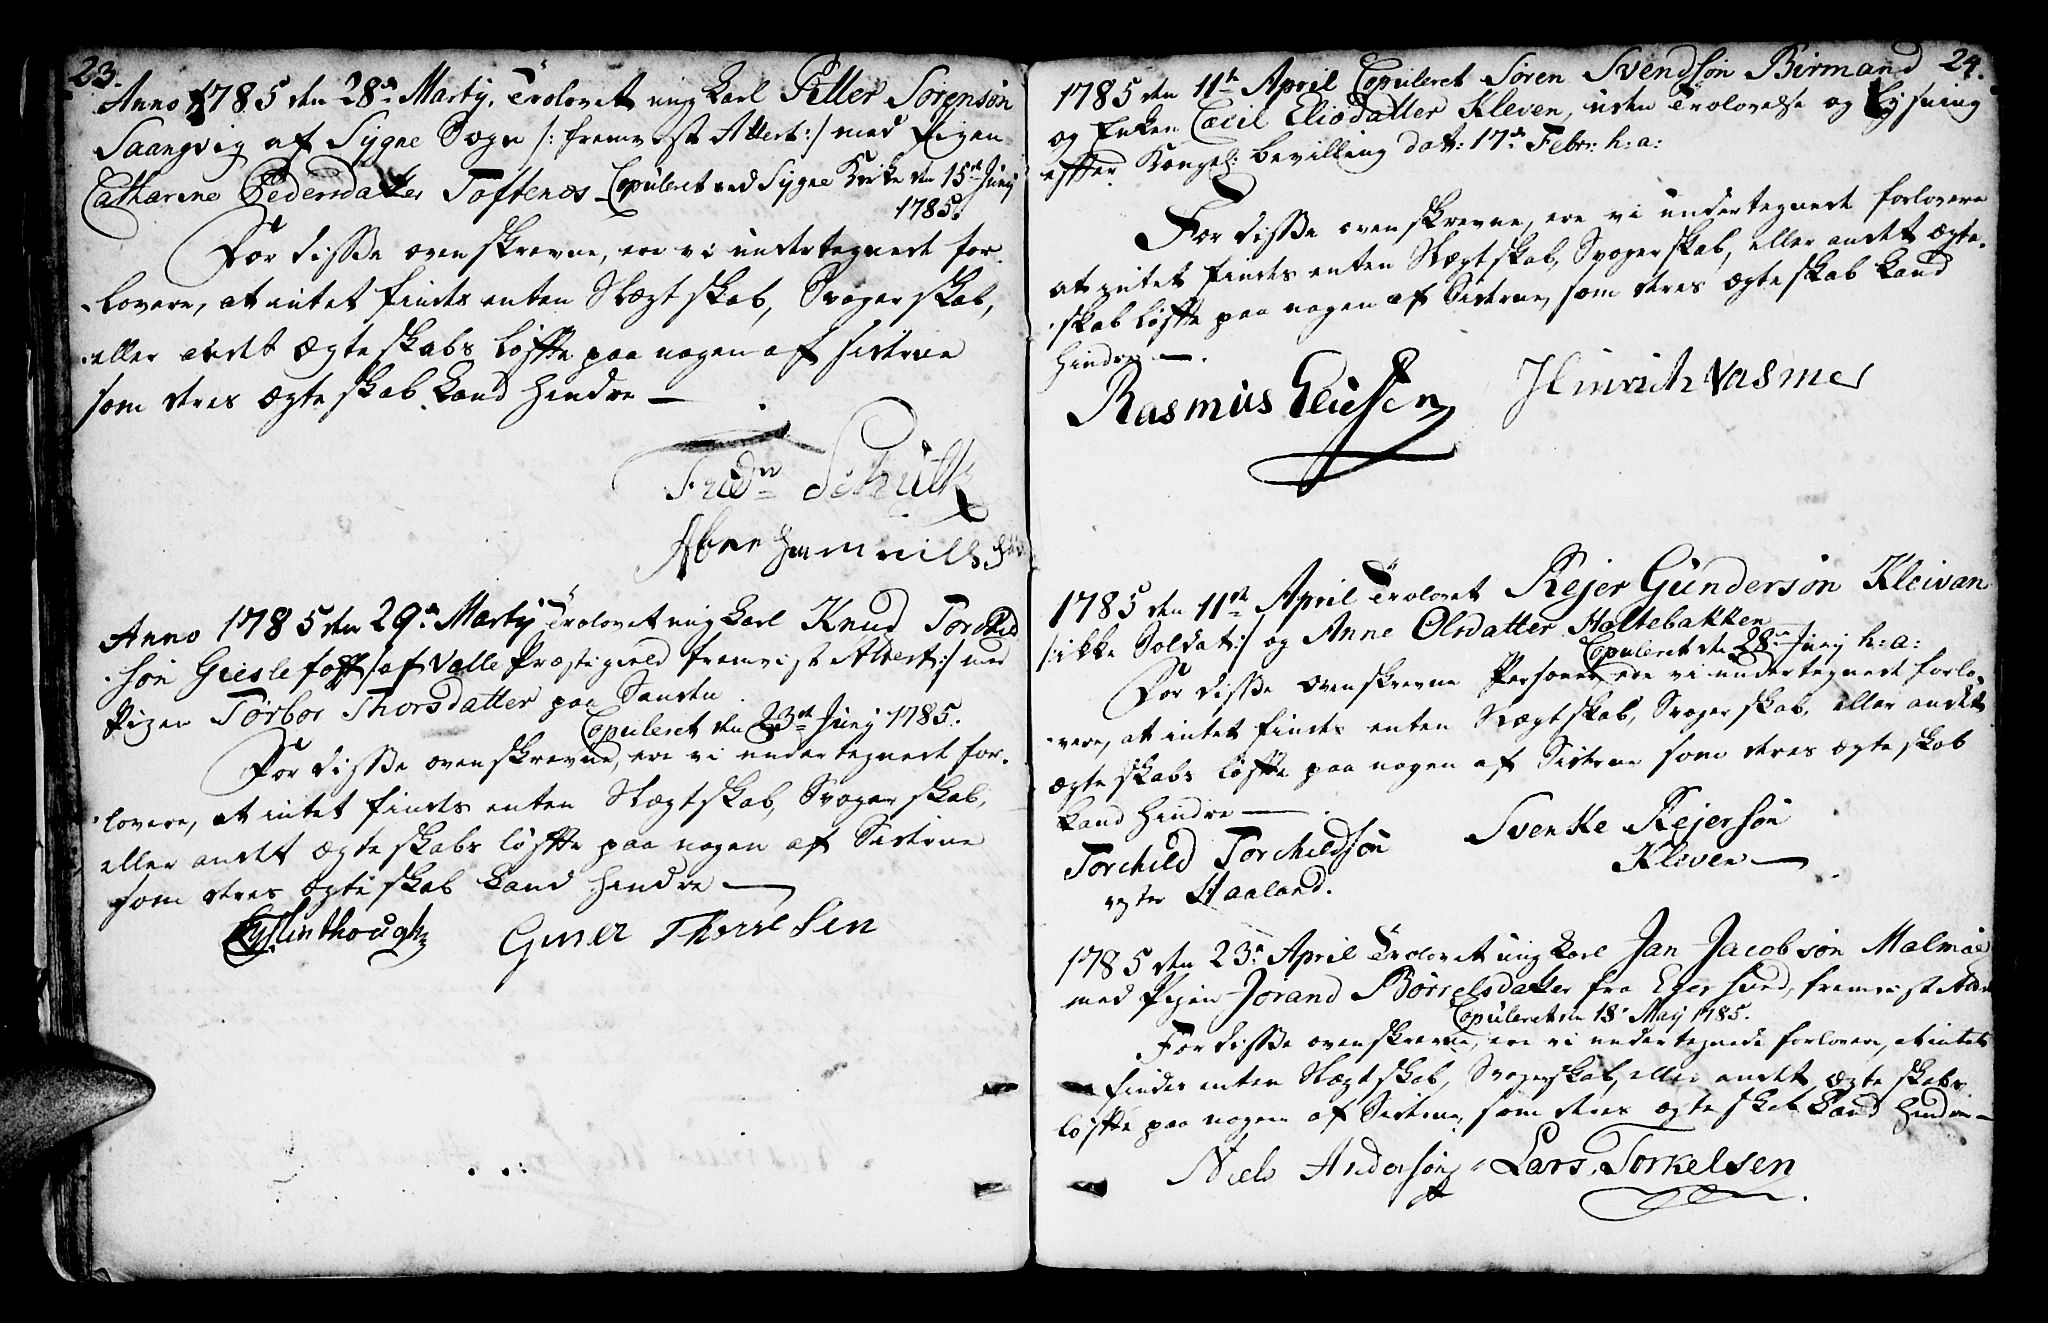 23.
Anno 1785 den 28de Martij. Trolovet ung Karl Peller Sörensön
Saangvig af Sygne Sogn /: fremvist Attest :/ med Pigen
Catharine Pedersdatter Toftenæs. Copuleret ved Sygne Kirke den 15de Junij
1785.
For disse ovenskrevne, ere vi undertegnede for-
lovere, at intet findes enten Slægtskab, Svogerskab,
eller andet Ægteskabs løfte paa nogen af Siderne
som deres Ægteskab kand hindre —
Anno 1785 den 29de Martij Trolovet ung Karl Knud Torchild
sön Gieslefoss /: af Valle Præstegield fremvist Attest :/ med
Pigen Törbor Thorsdatter paa Sanden.
Copuleret den 23de Junij 1785.
For disse ovenskrevne, ere vi undertegnede for-
lovere, at intet findes enten Slægtskab, Svogerskab,
eller andet ægteskabs løfte paa nogen af Siderne
som deres ægteskab kand hindre —
Thorsen
24.
1785 den 11te April Copuleret Sören Svendsön Birmand
og Enken Cæcil Eliædatter Kleven, uden Trolovelse og Lysning
efter Kongel: bevilling dat: 17de Febr: h: a:
For disse ovenskrevne, ere vi undertegnede forlovere
at intet findes enten Slægtskab, Svogerskab, eller andet ægte-
skab løfte paa nogen af Siderne, som deres ægteskab kand
hindre —.
Rasmus Elieſsen Hinrich Vasmer
1785 den 11te April Trolovet Rejer Gundersön Kleivan
/: ikke Soldat :/ og Anne Olsdatter Holtebakken
Copuleret den 28de Junij h: a:
For disse ovenskrevne Personer ere vi undertegnede forlo-
vere, at intet findes enten Slægtskab, Svogerskab, eller andet
ægteskabs løfte paa nogen af Siderne som deres ægteskab
kand hindre —.
Torchild Torchildsön Svenke Rejersön
Haaland. Kleven —
1785 den 23de April Trolovet ung Karl Jan Jacobsön Malmöe
med Pigen Jorand Börresdatter fra Egersund, fremvist Attest
Copuleret den 18de Maij 1785.
For disse ovenskrevne, ere vi undertegnede forlovere, at intet
findes enten Slægtskab, Svogerskab, eller andet ægteskabs
løfte paa nogen af Siderne, som deres ægteskab kand hindre —
Niels Andersön Lars Torkelsen